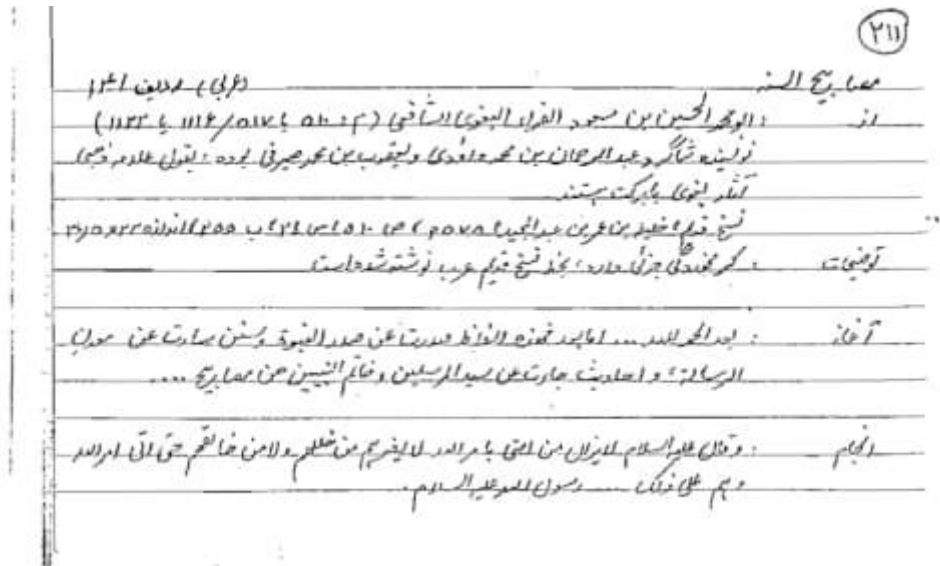 ٢١١
مصابیح السنہ (عربی) ردیف ١٣١
از : ابو محمد الحسین بن مسعود الفراء البغوی الشافعی (م: ٥١٠ یا ٥١٧/ ١١١۶ یا ١١٢٢)
نویسنده شاگرد عبدالرحمان بن محمد داؤدی و یعقوب بن محمد صیرفی بوده ؛ بقول علامه ذهبی
آثار بغوی بابرکت هستند
نسخ قدیم؛ خلیل بن عمر بن عبدالمجید؛ ٥٧٨
توضیحات : کرم خوردگی جزئی دارد؛ بخط نسخ قدیم عرب نوشته شده است
آغاز : بعد الحمد لله ... اما بعد فهذه الفاظ صدرت عن صدر النبوة و سنن سارت عن معدن
الرسالة؛ و احادیث جاءت عن سید المرسلین و خاتم النبیین من مصابیح ....
انجام : وقال علیه السلام لایزال من امتی بامر الله لا یضرهم من خذلهم ولا من خالفهم حتی اتی امر الله
وهم علی ذلک .... رسول الله علیه السلام.